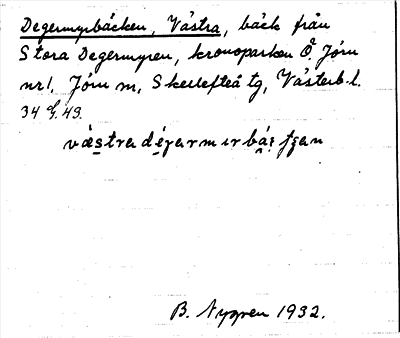 Degermyrbäcken, Västra, bäck från
Stora Degermyren, kronoparken Ö. Jörn
nr 1, Jörn sn, Skellefteå tg, Västerb. l.
34 G. 49.
västra
B. Nygren 1932.